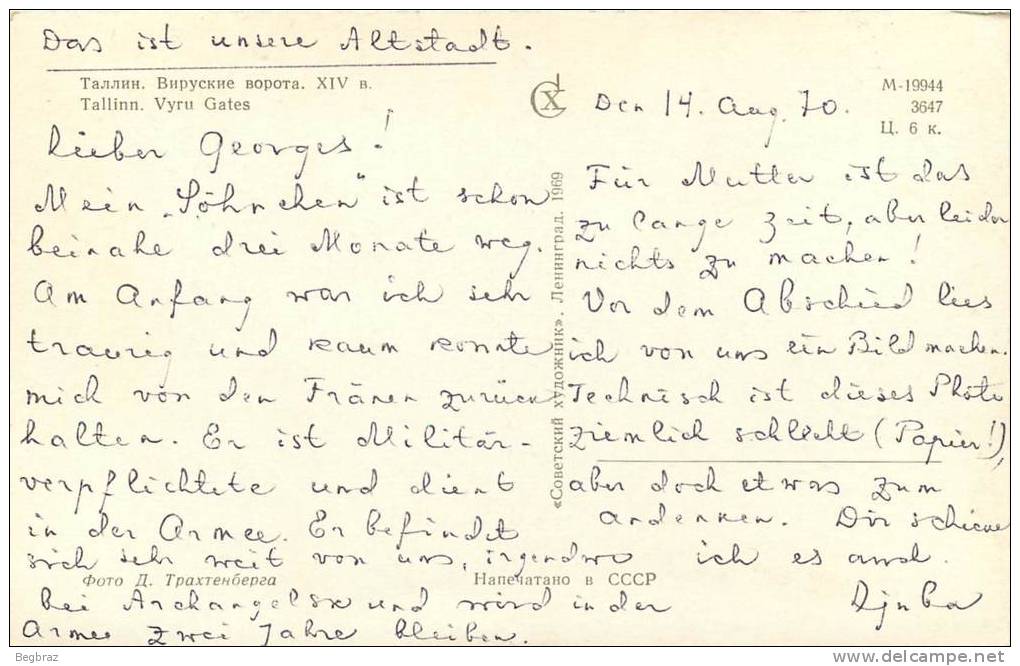 Das ist unsere Altstadt.
Таллин. Вируские ворота. XIV в.
Tallinn. Vyru Gates
Lieber Georges!
Mein „Söhnchen" ist schon
beinahe drei Monate weg.
Am Anfang war ich sehr
traurig und kaum konnte
mich von den Tränen zurück
halten. Er ist Militär-
verpflichtete und dient
in der Armee. Er befindet
sich sehr weit von uns, irgendwo
Фото Д. Трахтенберга
Напечатано в СССР
bei Archangelsk und wird in der
Armee zwei Jahre bleiben.
«Советский художник». Ленинград. 1969
СХ
М-19944
3647
Ц. 6 к.
Den 14. Aug. 70.
Für Mutter ist das
zu lange Zeit, aber leider
nichts zu machen!
Vor dem Abschied lies
ich von uns ein Bild machen.
Technisch ist dieses Photo
ziemlich schlecht (Papier!),
aber doch etwas zum
andenken. Dir schicke
ich es and.
Begbraz
delcampe.net